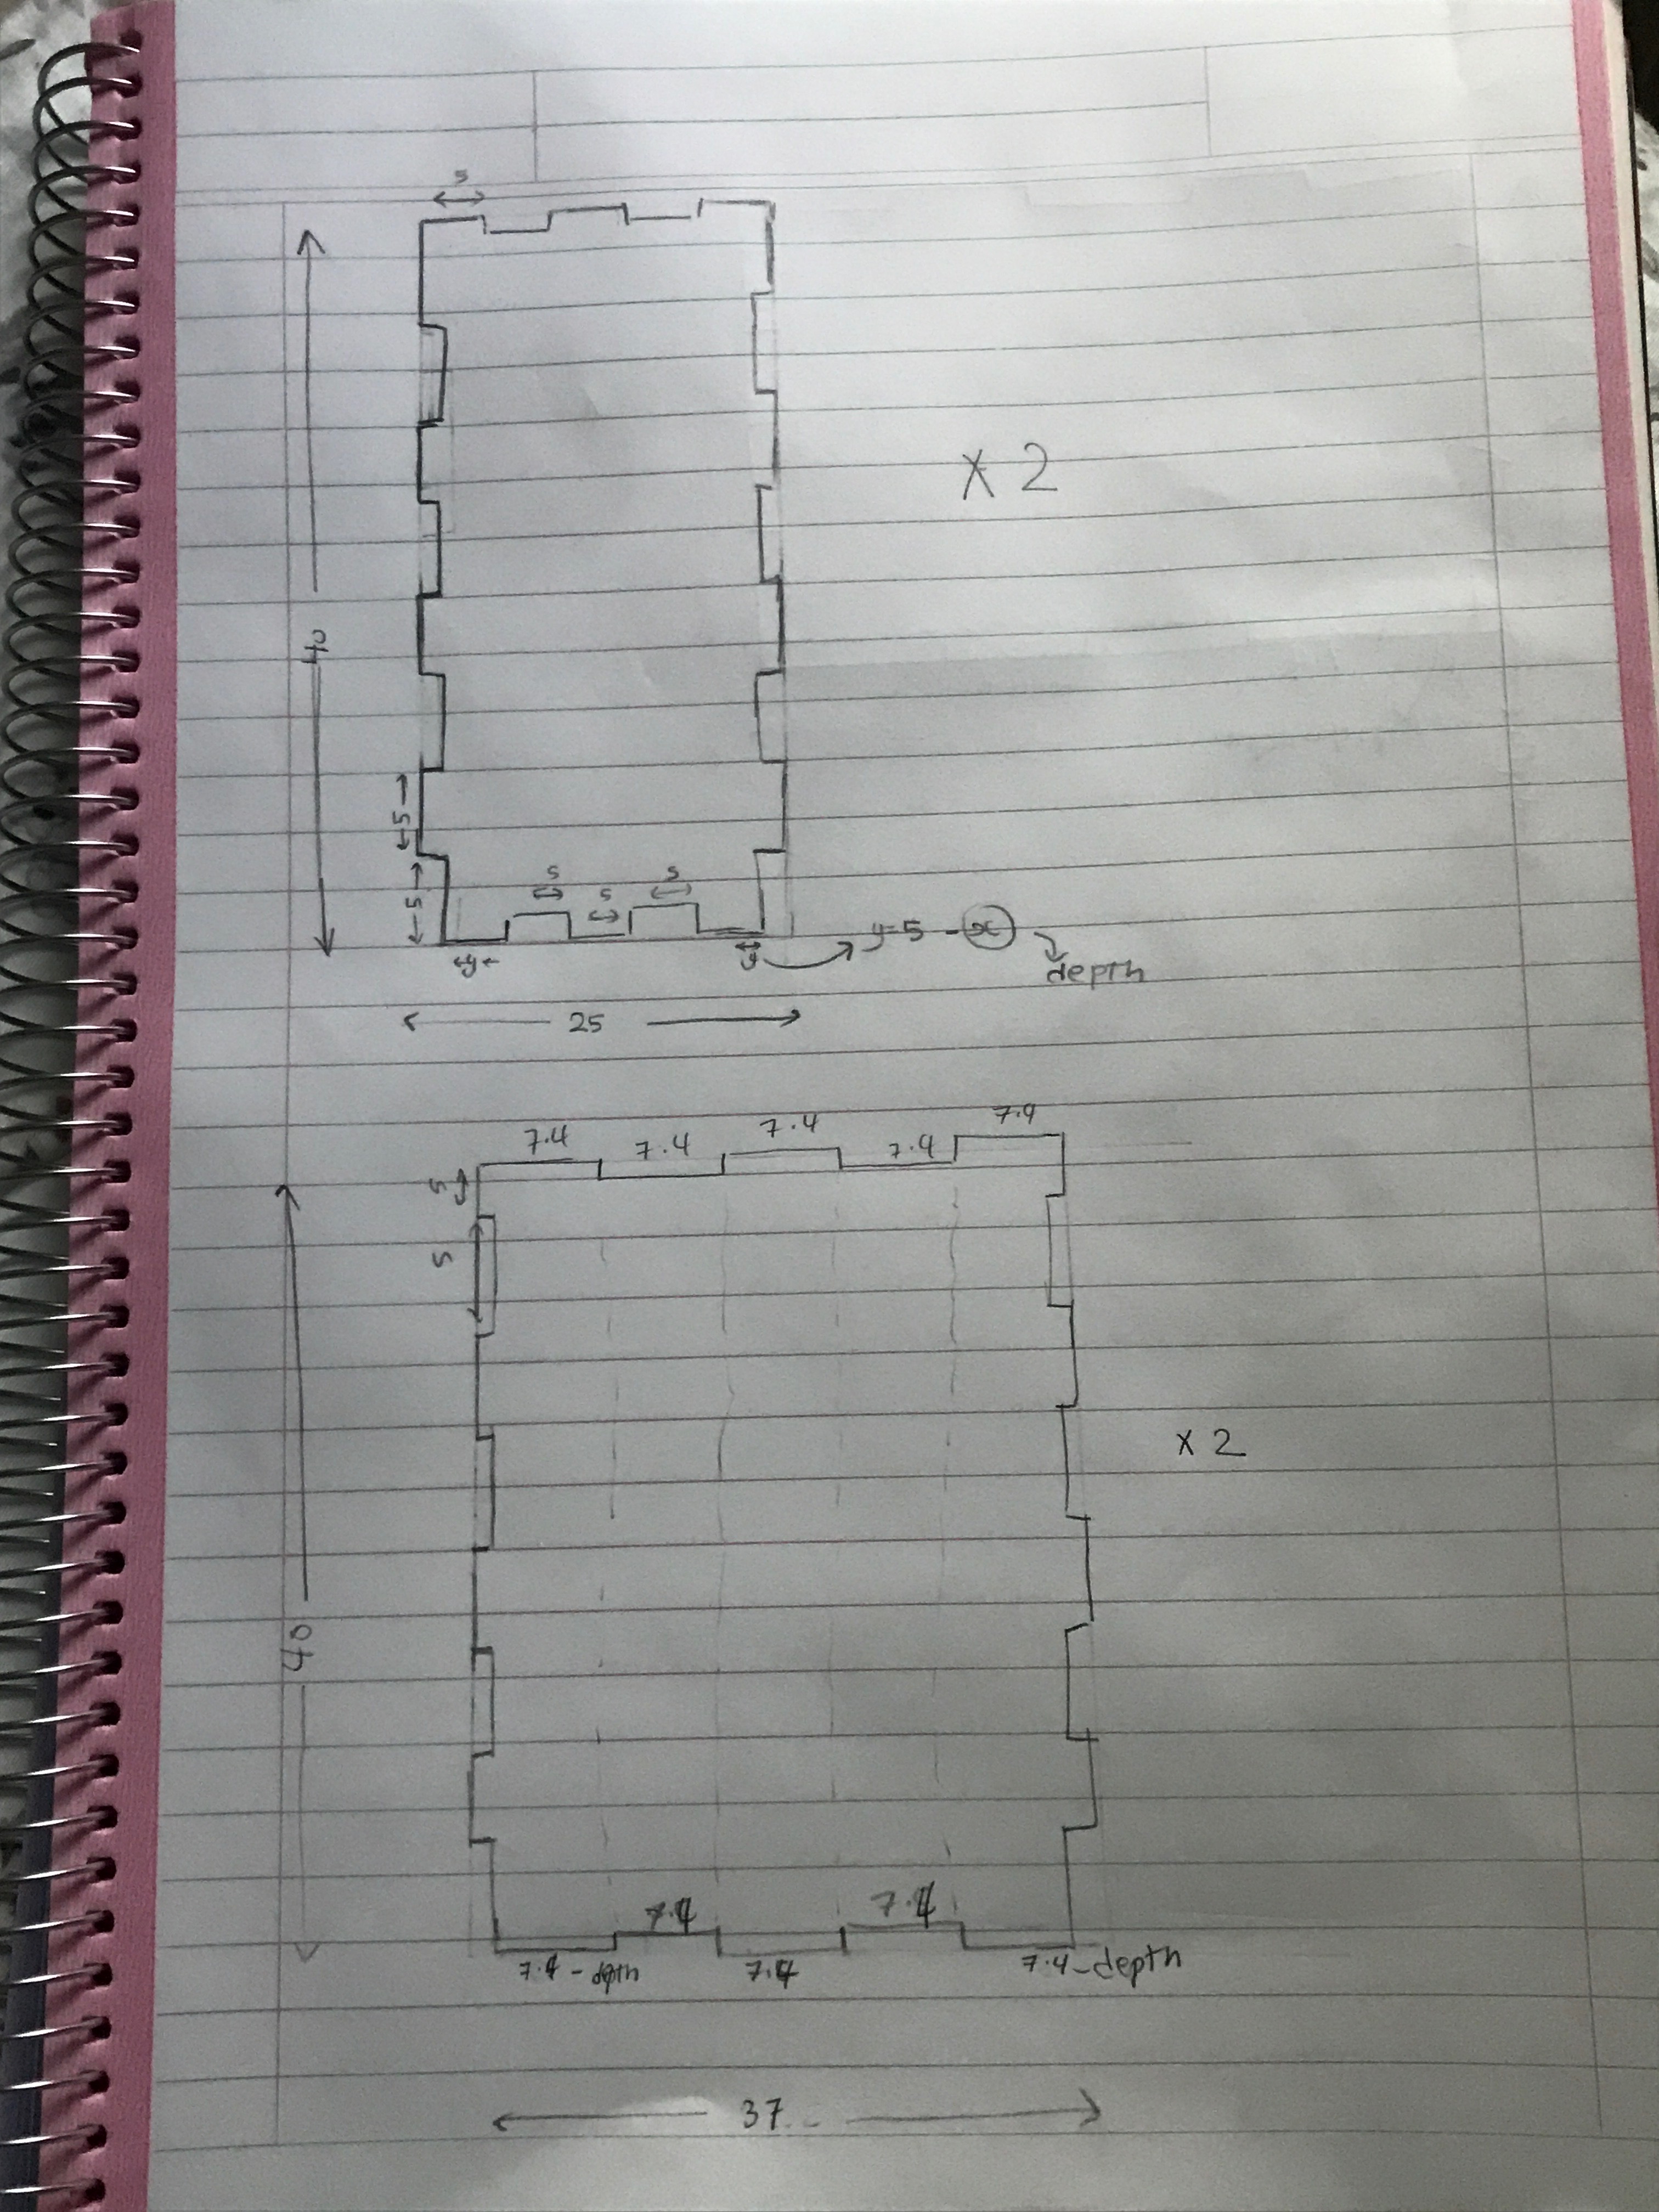 5
40
x 2
5
5
5
5
5
y
y
y=5 - x
depth
25
7.4
7.4
7.4
7.4
7.4
5
5
40
x 2
7.4
7.4
7.4 - depth
7.4
7.4 - depth
37